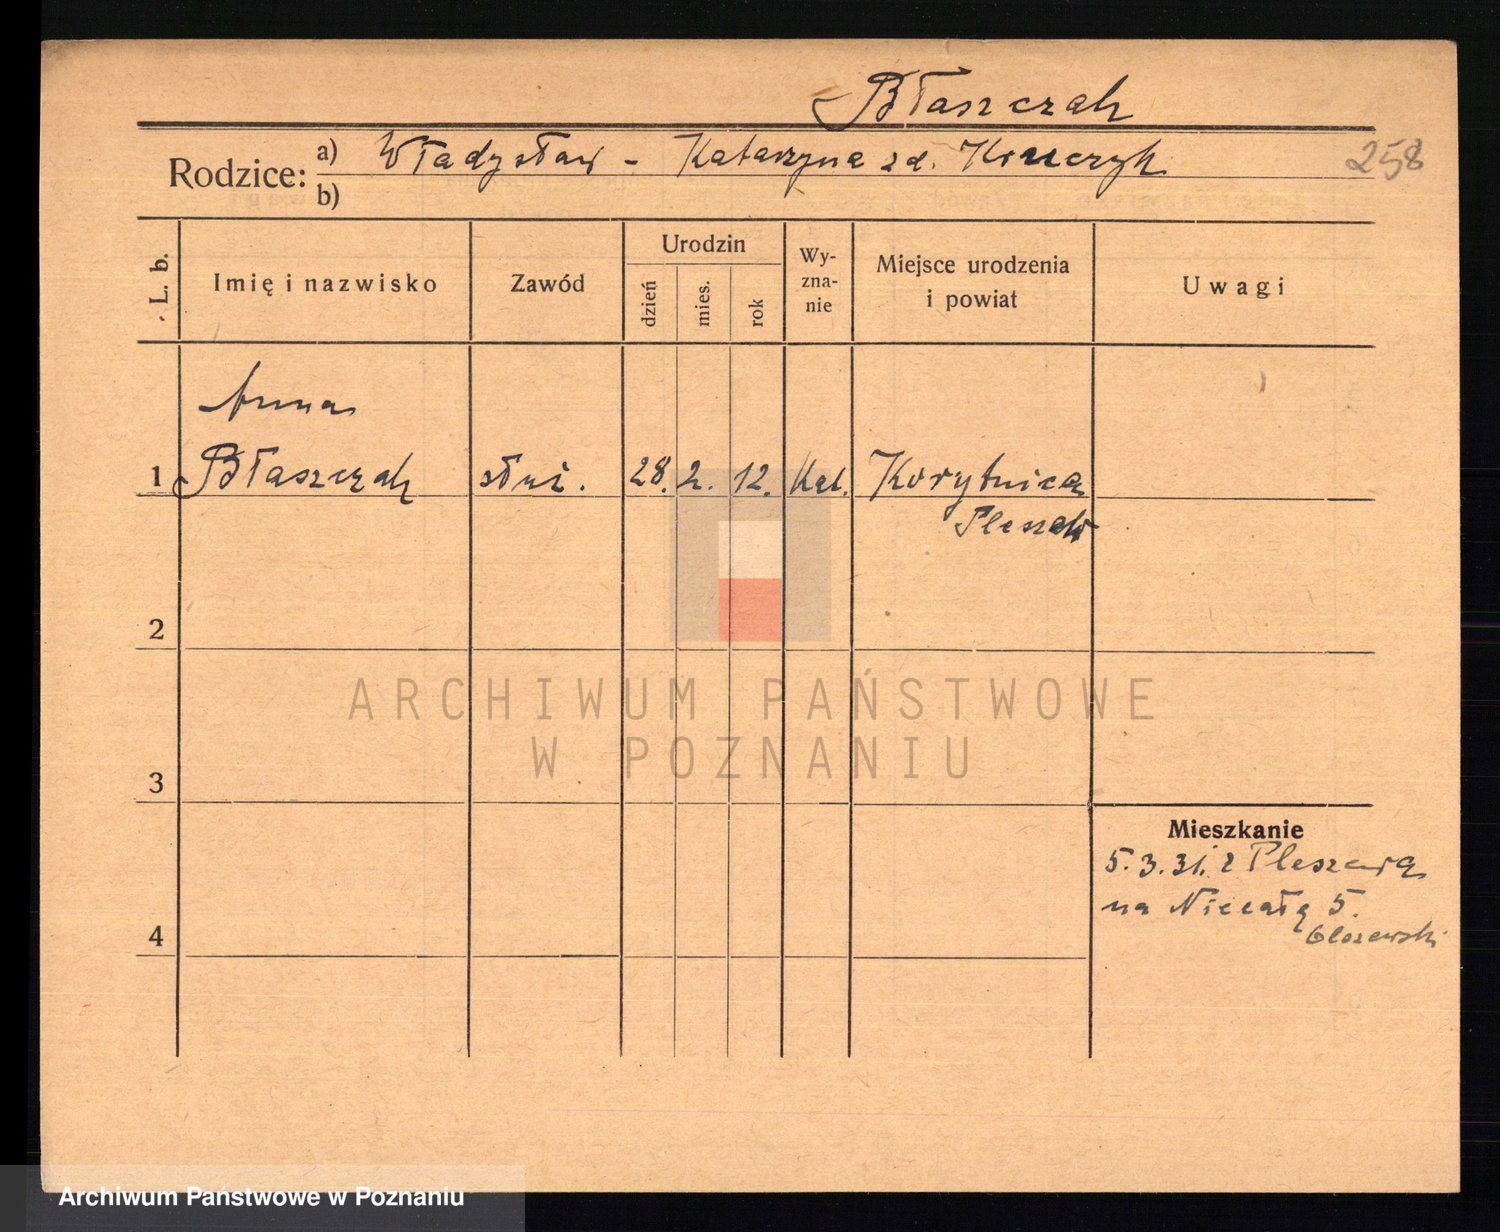 Błaszczak
Rodzice: a) Władysław - Katarzyna zd.
b)
258
L. b.
Imię i nazwisko
Zawód
Urodzin
dzień
mies.
rok
Wy-
zna-
nie
Miejsce urodzenia
i powiat
Uwagi
Anna
1 Błaszczak służ. 28. 2. 12. Kat. Korytnica
Pleszew
2
3
4
Mieszkanie
5.3.31. z Pleszewa
na Niecałą 5.
ARCHIWUM PAŃSTWOWE
W POZNANIU
Archiwum Państwowe w Poznaniu